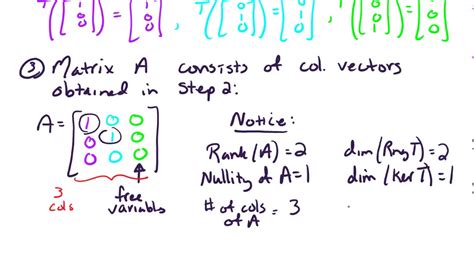 ③ Matrix A consists of col. vectors
obtained in Step 2:
A = [1 0 0
0 1 0
0 0 0]
3
cols
free
variables
Notice:
Rank(A) = 2 dim(Rng T) = 2
Nullity of A = 1 dim(Ker T) = 1
# of cols = 3
of A